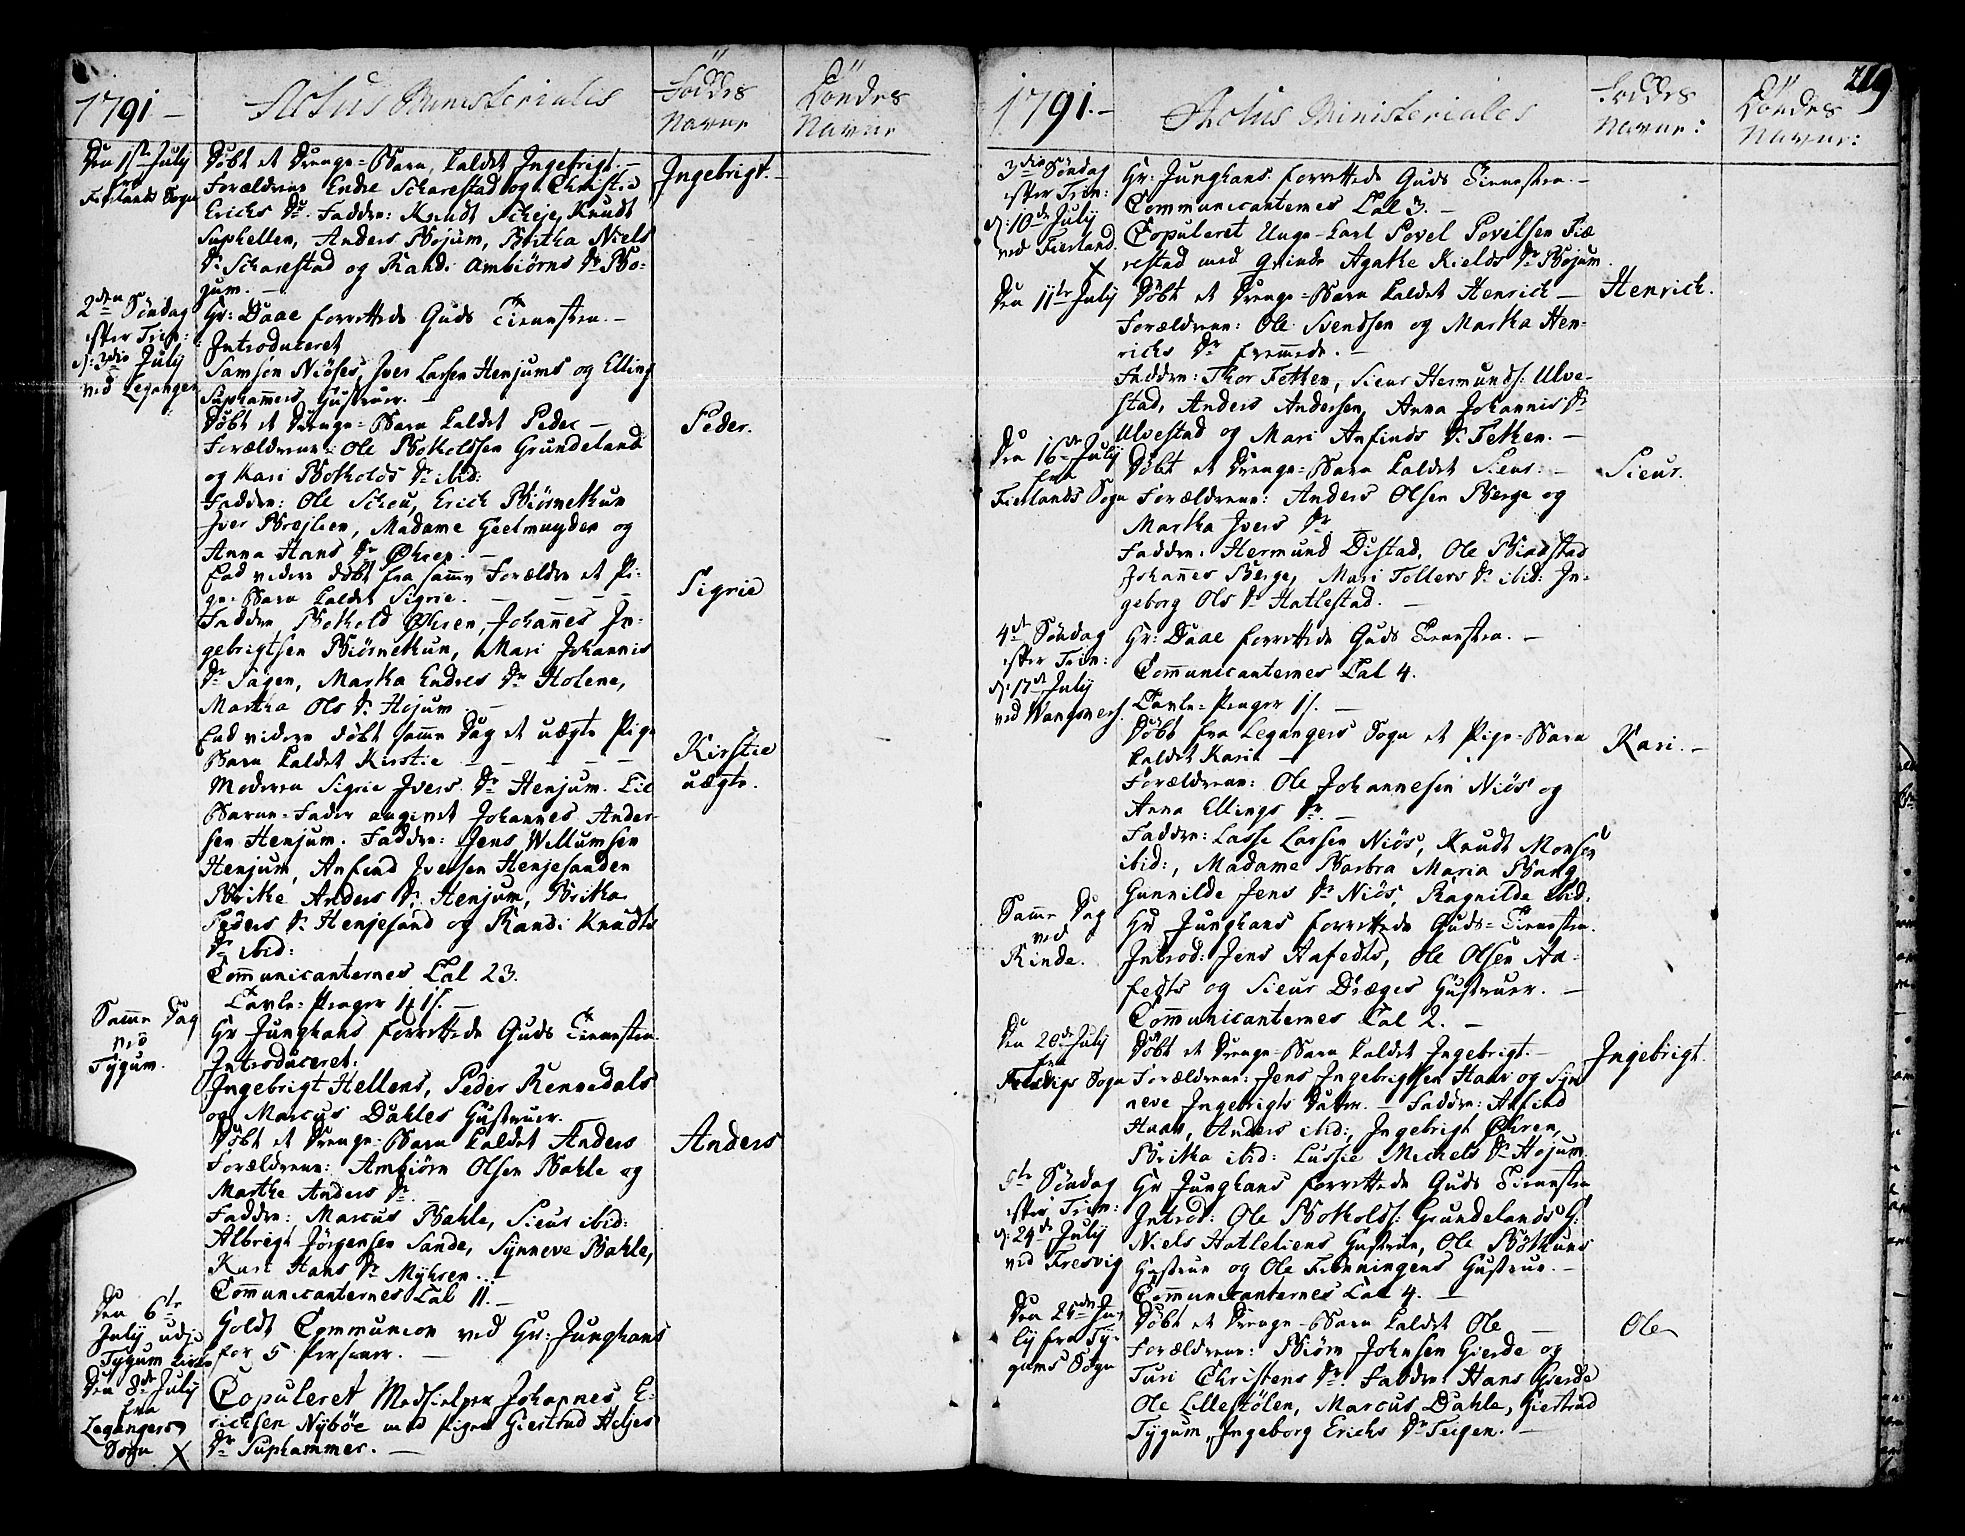 1791 –
Actus Ministerialis
Föddes Navne
Döndes Navne
Den 1ste July
fra
Fierlands Sogn
Döbt et Drenge-Barn kaldet Ingebrigt. –
Forældrene Endre Scharestad og Christie
Erichs Dr. Faddere: Knudt Scheje, Knudt
Suphellen, Anders Bojum, Britha Niels
Dr Scharestad og Randi Ambiörns Dr Bo-
jum. –
Ingebrigt. –
2den Söndag
efter Trin:
d: 3die July
ved Leganger
Hr: Daae forrettede Guds Tienesten. –
Introduceret
Samson Niöses, Iver Larsen Henjums og Elling
Suphamers Hustruer. –
Döbt et Drenge-Barn kaldet Peder –
Forældrene: Ole Botholdsen Grundeland
og Kari Botholds Dr ibid:
Faddere: Ole Scheu, Erich Biörnethun
Iver Brejlien, Madame Geelmuyden og
Anna Hans Dr Öhren. –
Peder.
End videre döbt fra samme Forældre et Pi-
ge-Barn kaldet Sigrie. – – – –
Faddere Bothold Öhren, Johannes In-
gebrigtsen Biörnethun, Mari Johannis
Dr Sagen, Martha Endres Dr Holene,
Martha Ols Dr Hojum –
Sigrie
End videre döbt samme Dag et uægte Pige
Barn kaldet Kirstie – – – – –
Moderen Sigrie Ivers Dr Henjum. Til
Barne-Fader angivet Johannes Ander-
sen Henjum. Faddere: Jens Willumsen
Henjum, Anfind Iversen Henjesanden
Brithe Anders Dr Henjum, Britha
Peders Dr Henjesand og Randi Knudts
Dr ibid:
Communicanternes Tal 23.
Tavle-Penger
Kirstie
uægte.
Samme Dag
ved
Tygum.
Hr Junghans forrettede Guds Tienesten.
Introduceret.
Ingebrigt Hellens, Peder Rennedals
og Marcus Dahles Hustruer.
Döbt et Drenge-Barn kaldet Anders
Forældrene: Ambiörn Olsen Bahle og
Marthe Anders Dr
Faddere: Marcus Bahle, Sieur ibid:
Albregt Jörgensen Sande, Synneve Bahle,
Kari Hans Dr Myhren. –
Communicanternes Tal 11. –
Anders
Den 6te
July udi
Tygum Kirke
Holdt Communion ved Hr: Junghans
for 5 Personer. –
Den 8de July
fra
Legangers
Sogn X
Copuleret Johannes E-
richsen Nyböe med Pigen Giertrud Heljes
Dr Suphammer. –
1791. –
Actus Ministeriales
Föddes Navne:
Döndes Navne:
219
3die Söndag
efter Trin:
d: 10de July
ved Fierland.
X
Hr: Junghans forrettede Guds Tienesten. –
Communicanternes Tal 3. –
Copuleret Unge-Karl Povel Povelsen Fiæ
restad med Qvinde Agathe Kields Dr Bojum.
Den 11te July
Döbt et Drenge-Barn kaldet Henrich –
Forældrene: Ole Svendsen og Martha Hen-
richs Dr fremede. –
Faddere: Thor Fetten, Sieur Hermunds: Ulve-
stad, Anders Andersen, Anna Johannis Dr
Ulvestad og Mari Anfinds Dr Fetten. –
Henrich.
Den 16de July
fra
Fierlands Sogn
Döbt et Drenge-Barn kaldet Sieur: –
Forældrene: Anders Olsen Berge og
Martha Ivers Dr
Faddere: Hermund Distad, Ole Biadstad
Johannes Berge, Mari Tollevs Dr ibid: In-
geborg Ols Dr Hatlestad. –
Sieur.
4de Söndag
efter Trin:
d: 17de July
ved Wangsnes.
Hr: Daae forrettede Guds Tienesten. –
Communicanternes Tal 4.
Tavle-Penger 1ß. –
Döbt fra Legangers Sogn et Pige-Barn
kaldet Kari –
Forældrene: Ole Johannesen Niös og
Anna Ellings Dr. –
Faddere: Lasse Larsen Niös, Knudt Monsen
ibid:, Madame Barbra Maria Bang
Gunnilde Jens Dr Niös, Ragnilde ibid.
Kari. –
Samme Dag
ved
Rinde.
Hr Junghans forrettede Guds-Tienesten.
Introd: Jens Aafedts, Ole Olsen Aa-
fedts og Sieur Dræges Hustruer. –
Communicanternes Tal 2. –
Den 20de July
fra
Fresvigs Sogn
Döbt et Drenge-Barn kaldet Ingebrigt. –
Forældrene: Jens Ingebrigtsen Haav og Syn
neve Ingebrigts Datter. – Faddere: Anfind
Haav, Anders ibid:, Ingebrigt Öhren,
Britha ibid: Lussie Michels Dr Hojum.
Ingebrigt.
5te Söndag
efter Trin:
d: 24de July
ved Fresvig
Hr Junghans forrettede Guds Tienesten
Introd: Ole Botholds: Grundelands H:
Niels Hatleliens Hustrue, Ole Böthuns
Hustrue og Ole Hustrue. –
Communicanternes Tal 4. –
Den 25de Ju-
ly fra Ty-
gums Sogn
Döbt et Drenge-Barn kaldet Ole –
Forældrene: Biörn Johnsen Gierde og
Turi Christens Dr. Faddere: Hans Gierde
Ole Lillestölen, Marcus Dahle, Giertrud
Tygum, Ingeborg Erichs Dr Teigen. –
Ole